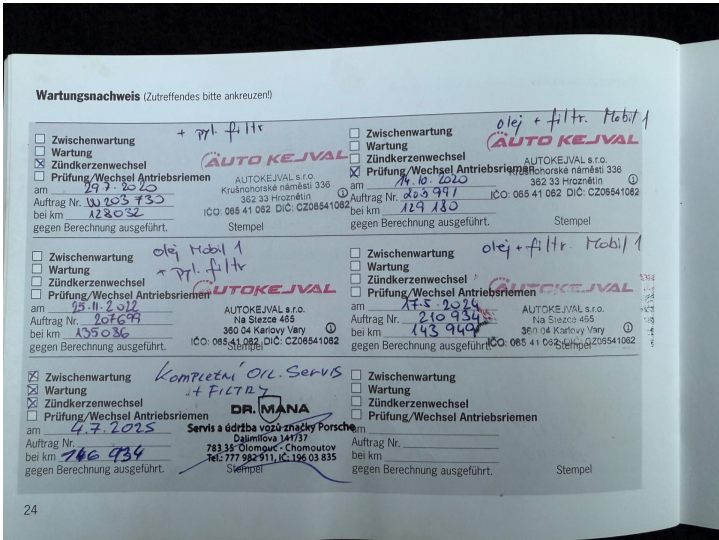 Wartungsnachweis (Zutreffendes bitte ankreuzen!)
+ pyl. filtr
Zwischenwartung
Wartung
Zündkerzenwechsel
Prüfung/Wechsel Antriebsriemen
am 29.7.2020
Auftrag Nr. W203 730
bei km 128032
gegen Berechnung ausgeführt.
AUTO KEJVAL
AUTOKEJVAL s.r.o.
Krušnohorské náměstí 336
362 33 Hroznětín
IČO: 065 41 062 DIČ: CZ06541062
Stempel
olej + filtr. Mobil 1
Zwischenwartung
Wartung
Zündkerzenwechsel
Prüfung/Wechsel Antriebsriemen
am 14.10.2020
Auftrag Nr. 203 991
bei km 129 180
gegen Berechnung ausgeführt.
AUTO KEJVAL
AUTOKEJVAL s.r.o.
Krušnohorské náměstí 336
362 33 Hroznětín
IČO: 065 41 062 DIČ: CZ06541062
Stempel
olej Mobil 1
+ pyl. filtr
Zwischenwartung
Wartung
Zündkerzenwechsel
Prüfung/Wechsel Antriebsriemen
am 25.11.2022
Auftrag Nr. 207699
bei km 135036
gegen Berechnung ausgeführt.
AUTOKEJVAL
AUTOKEJVAL s.r.o.
Na Stezce 465
360 04 Karlovy Vary
IČO: 065 41 062 DIČ: CZ06541062
Stempel
olej + filtr. Mobil 1
Zwischenwartung
Wartung
Zündkerzenwechsel
Prüfung/Wechsel Antriebsriemen
am 17.5.2024
Auftrag Nr. 210 934
bei km 143 949
gegen Berechnung ausgeführt.
AUTOKEJVAL
AUTOKEJVAL s.r.o.
Na Stezce 465
360 04 Karlovy Vary
IČO: 065 41 062 DIČ: CZ06541062
Stempel
KOMPLETNÍ OIL. SERVIS
+ FILTRY
Zwischenwartung
Wartung
Zündkerzenwechsel
Prüfung/Wechsel Antriebsriemen
am 4.7.2025
Auftrag Nr.
bei km 146 934
gegen Berechnung ausgeführt.
DR. MANA
Servis a údržba vozů značky Porsche
Dalimilova 141/37
783 35 Olomouc - Chomoutov
Tel.: 777 982 911, IČ: 196 03 835
Stempel
Zwischenwartung
Wartung
Zündkerzenwechsel
Prüfung/Wechsel Antriebsriemen
am
Auftrag Nr.
bei km
gegen Berechnung ausgeführt.
Stempel
24